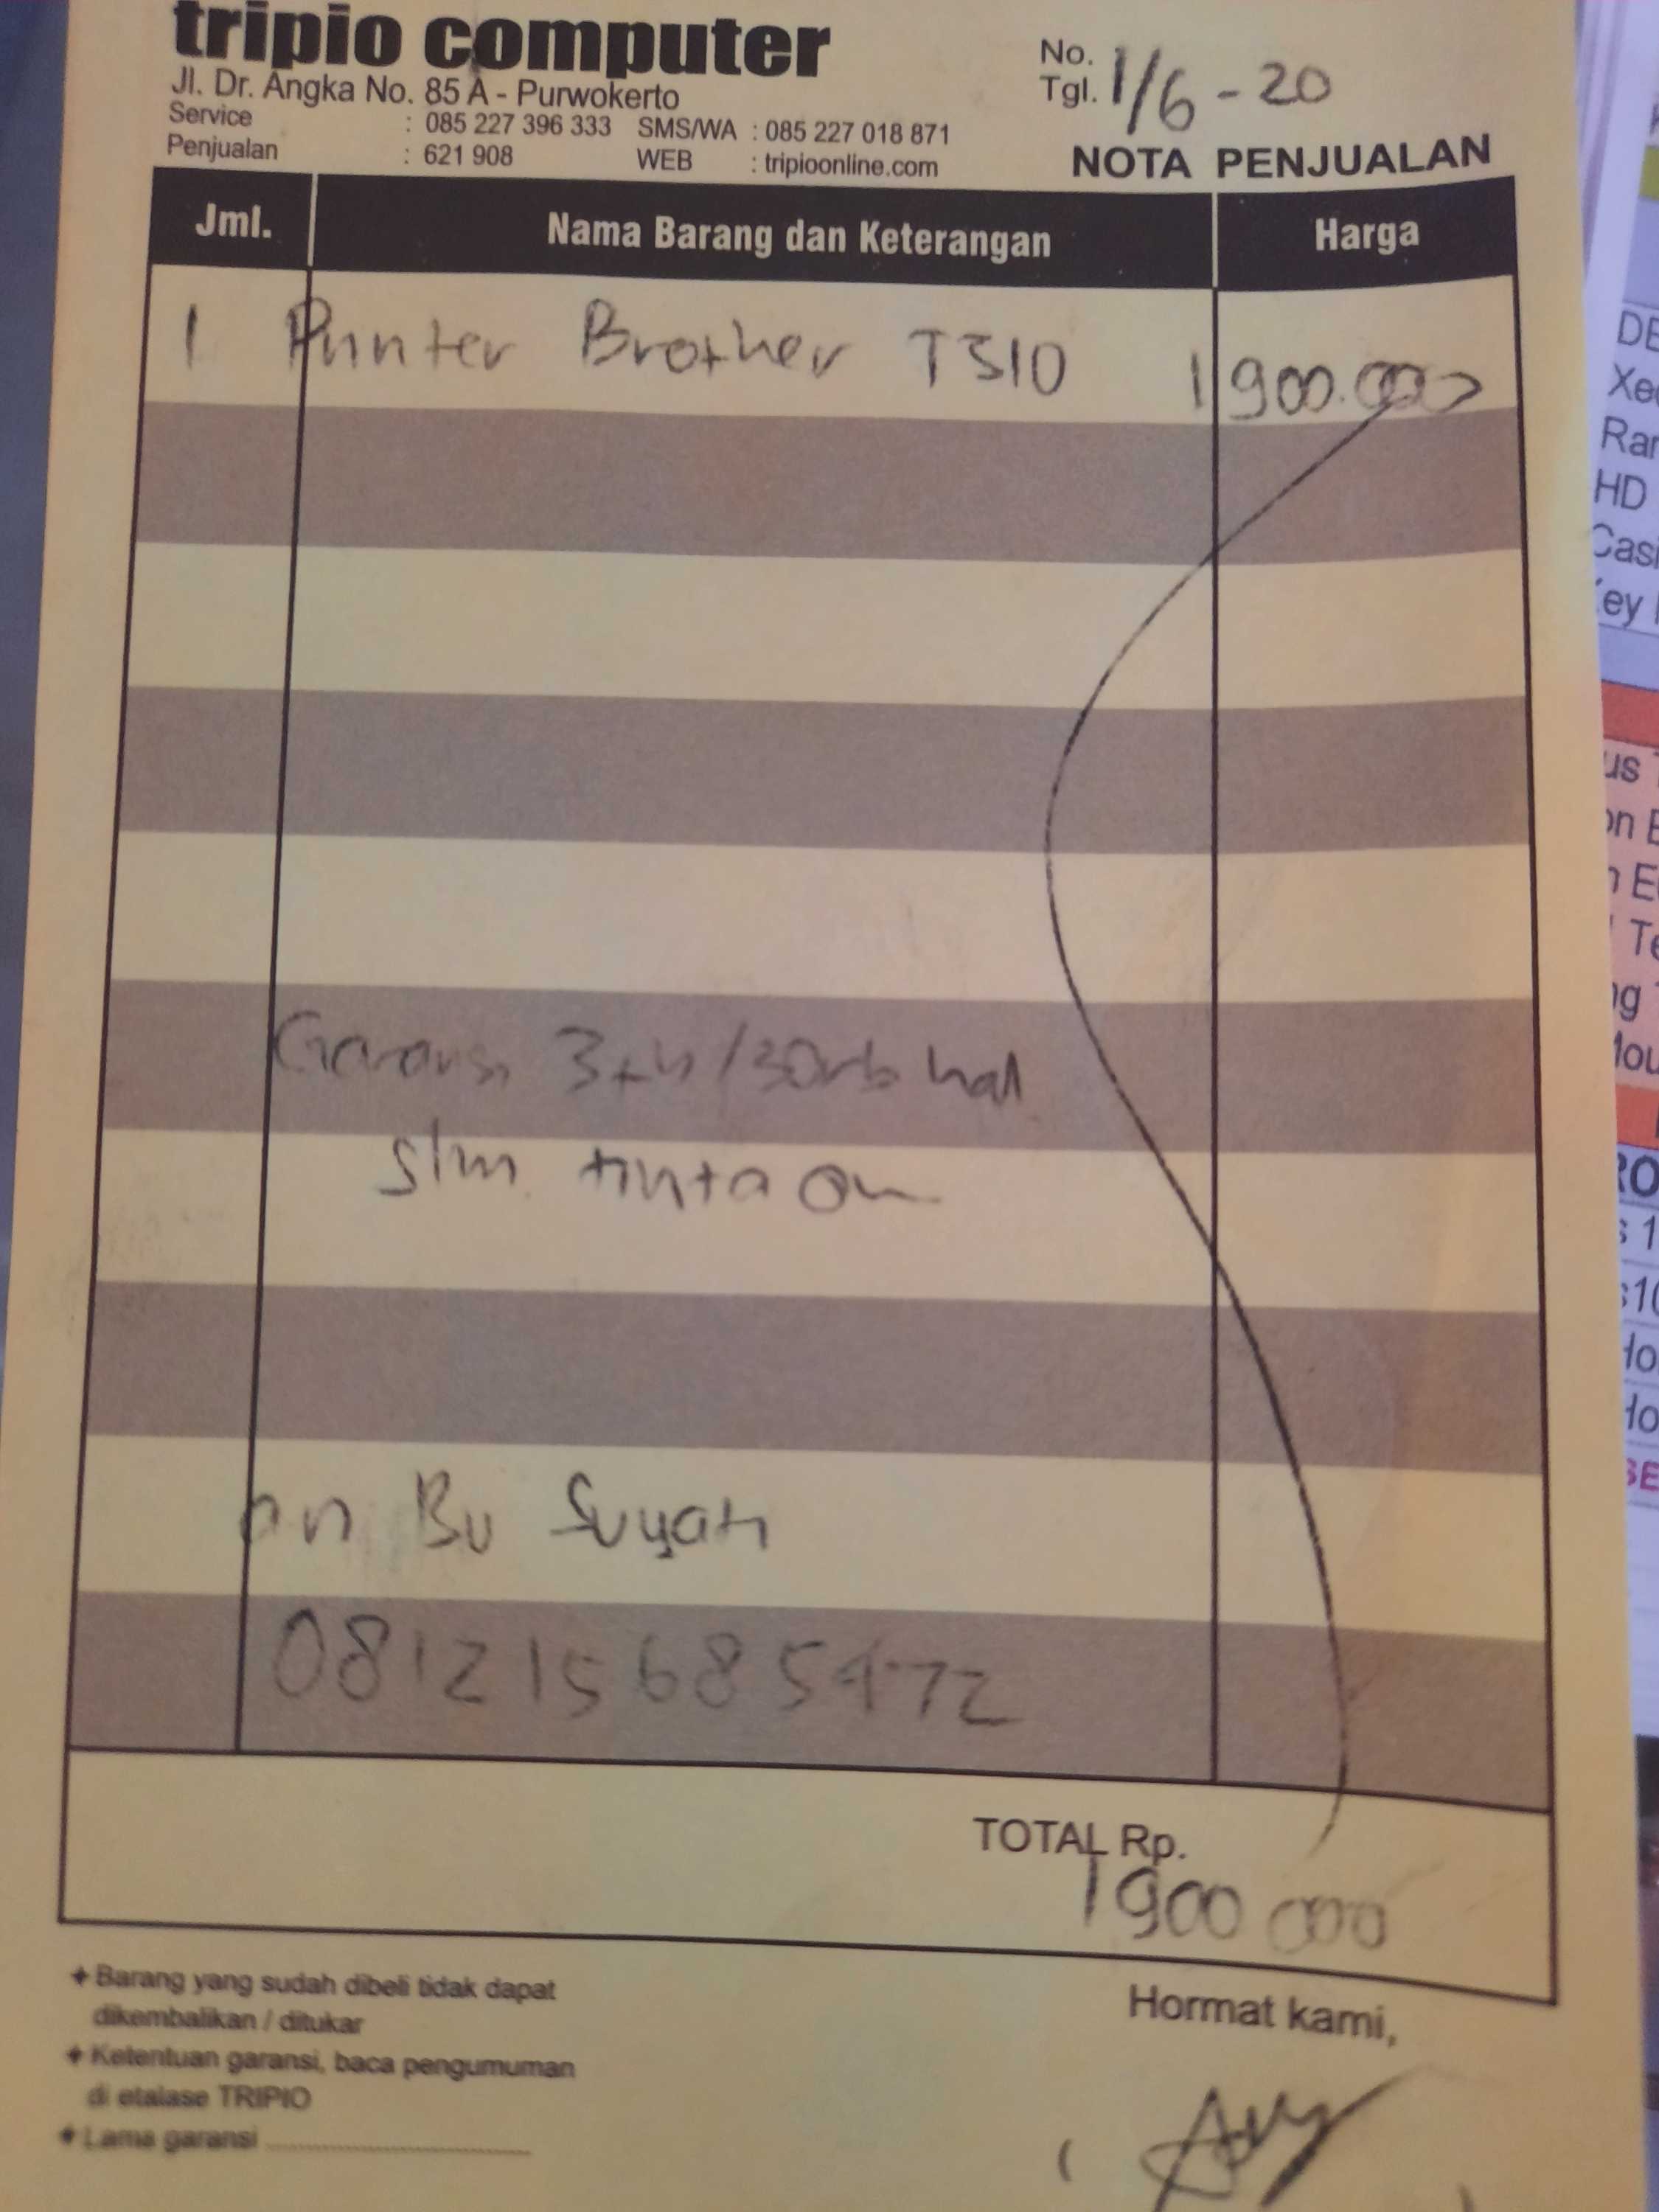 tripio computer
Jl. Dr. Angka No. 85 A - Purwokerto
Service : 085 227 396 333 SMS/WA : 085 227 018 871
Penjualan : 621 908 WEB : tripioonline.com
No.
Tgl. 1/6 - 20
NOTA PENJUALAN
Jml. Nama Barang dan Keterangan Harga
1 Printer Brother T310 1900.000
Garansi 3th/30rb hal
slm tinta ori
an Bu Suyati
081215685472
TOTAL Rp.
1900 000
+ Barang yang sudah dibeli tidak dapat
dikembalikan / ditukar
+ Ketentuan garansi, baca pengumuman
di etalase TRIPIO
+ Lama garansi
Hormat kami,
DE
Ra
HD
Cas
ey
us
Te
ng
Mou